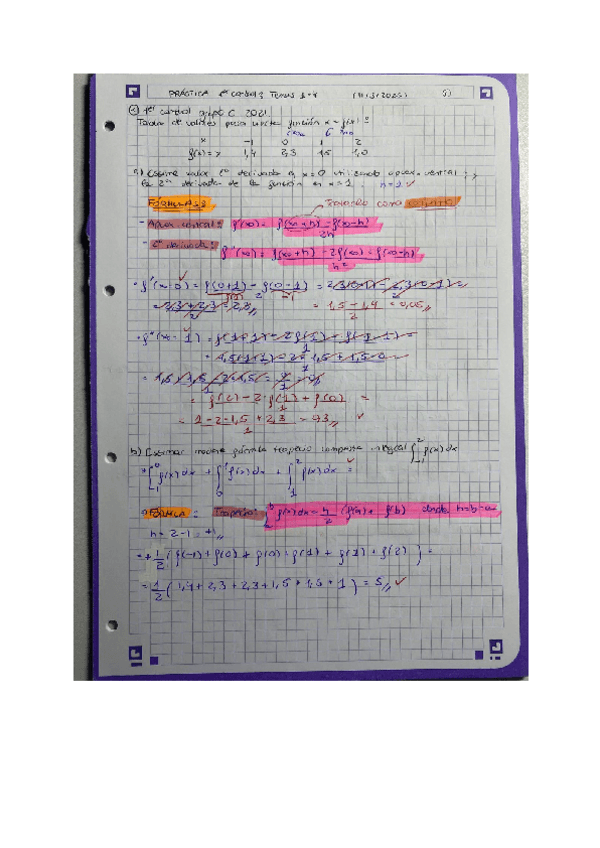 PRÁCTICA 1er control Temas 1-4 (11/3/2025) 5)
1er control grupo C 2021
Tabla de valores para cierta función x = f(x) =
x -1 0 1 2
f(x) = y 1,4 2,3 1,5 1,0
a) Estime valor 1ª derivada en x=0 utilizando aprox. central; y
la 2ª derivada de la función en x=1. h=1 ✓
FÓRMULAS
- Aprox central: f'(x0) = f(x0+h) - f(x0-h)
2h
- 2ª derivada: f''(x0) = f(x0+h) - 2f(x0) + f(x0-h)
h²
f'(x=0) = f(0+1) - f(0-1) =
2
= 1,5 - 1,4 = 0,05
2
f''(x=1) =
= f(2) - 2·f(1) + f(0) =
1
= 1 - 2·1,5 + 2,3 = 0,3 ✓
1
b) Estimar mediante fórmula trapecio compuesta integral ∫ f(x) dx
∫ f(x) dx + ∫ f(x) dx + ∫ f(x) dx =
FÓRMULA: Trapecios ∫ f(x) dx = h/2 (f(a) + f(b)) donde h=b-a
h = 2-1
= 1/2 (f(-1) + f(0) + f(0) + f(1) + f(1) + f(2)) =
= 1/2 (1,4 + 2,3 + 2,3 + 1,5 + 1,5 + 1) = 5 ✓